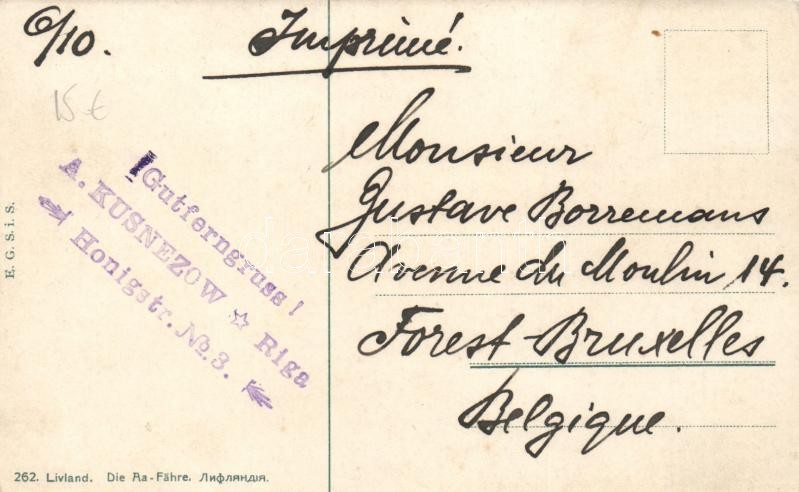 6/10.
Imprimé.
15 €
Gutferngruss!
A. KUSNEZOW ☆ Riga
Honigstr. №.3.
E. G. S. i. S.
Monsieur
Gustave Borremans
Avenue du Moulin 14.
Forest-Bruxelles
Belgique.
262. Livland. Die Aa-Fähre. Лифляндія.